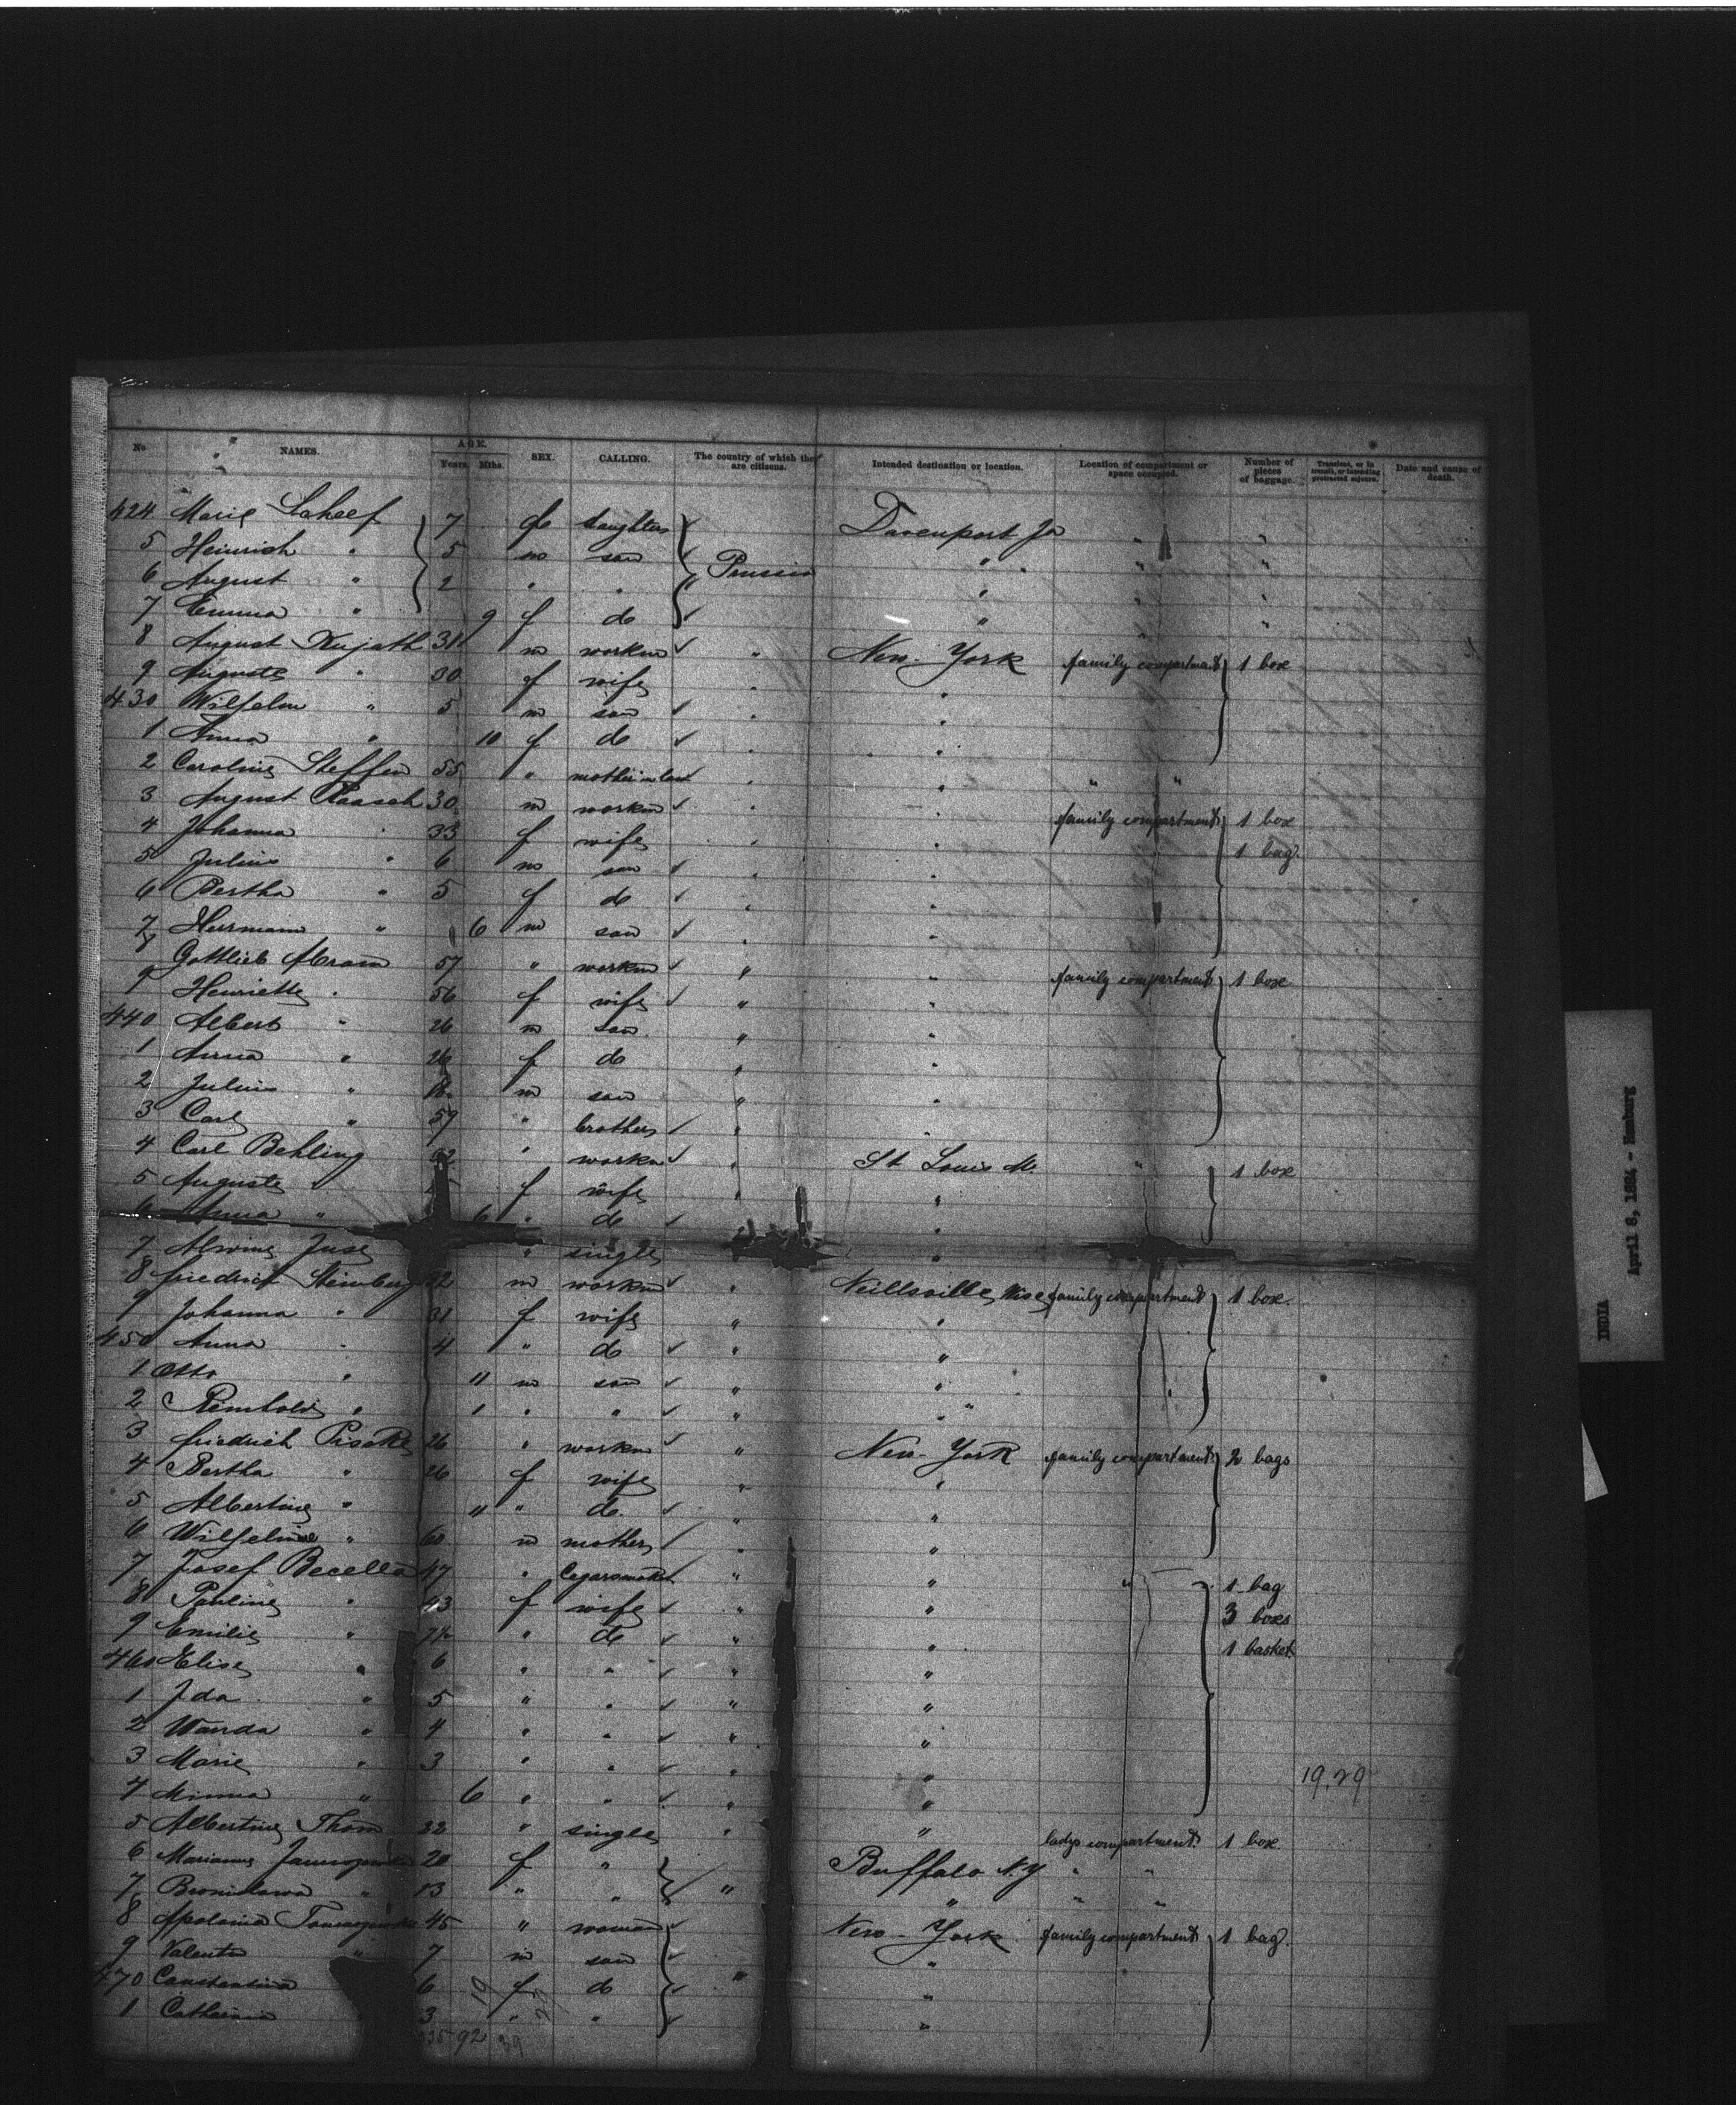 No NAMES. AGE. Years. Mths. SEX. CALLING. The country of which they are citizens. Intended destination or location. Location of compartment or space occupied. Number of pieces of baggage. Transient, or in transit, or intending protracted sojourn. Date and cause of death.
424 Marie 7 f daughter Davenport Ja " "
5 Heinrich " 5 m son Prussia " " "
6 August " 2 " " " " "
7 Emma " 9 f do " " "
8 August Kujath 31 m workm " New-York family compartment 1 box
9 Auguste " 30 f wife " "
430 Wilhelm " 5 m son " "
1 Anna " 10 f do " "
2 Caroline Steffen 55 " mother in law " " " "
3 August Raasch 30 m workm " " family compartment 1 box
4 Johanna " 33 f wife " " 1 bag.
5 Julius " 6 m son " "
6 Bertha " 5 f do " "
7 Herrmann " 6 m son " "
8 Gottlieb Abram 57 " workm " " family compartment 1 box
9 Henriette " 56 f wife " "
440 Albert " 26 m son " "
1 Anna " 26 f do " "
2 Julius " 18 m son " "
3 Carl " 59 " brother " "
4 Carl Behling " workm " St Louis Mo. " 1 box
5 Auguste " f wife " "
6 Anna " 6 " do " "
7 Alwine Juse " single "
8 Friedrich Steinberg 32 m workm " Neillsville, Wisc family compartment 1 box.
9 Johanna " 31 f wife " "
450 Anna " 4 " do " "
1 Otto " 11 m son " "
2 Reinhold " 1 " " " "
3 Friedrich Piseke 26 " workm " New-York family compartment 2 bags
4 Bertha " 26 f wife " "
5 Albertine " 11 " do. " "
6 Wilhelmine " 60 m mother " "
7 Josef Becella 47 " Cegarsmaker " " " 1 bag
8 Pauline " 43 f wife " " 3 boxes
9 Emilie " 7½ " do " " 1 basket
460 Elise " 6 " " " "
1 Ida " 5 " " " "
2 Wanda " 4 " " " "
3 Marie " 3 " " " " 19,29
4 Minna " 6 " " " "
5 Albertine Thom 22 " single " " ladys compartment. 1 box
6 Marianne 20 f " Buffalo N.Y " "
7 Bronislawa " 13 " " " " " "
8 Apolonia 45 " woman New-York family compartment 1 bag.
9 Valentin " 7 m son "
470 Constantina 6 f do " "
1 Catharina 3 " " "
92 39
INDIA
April 8, 1884 - Hamburg